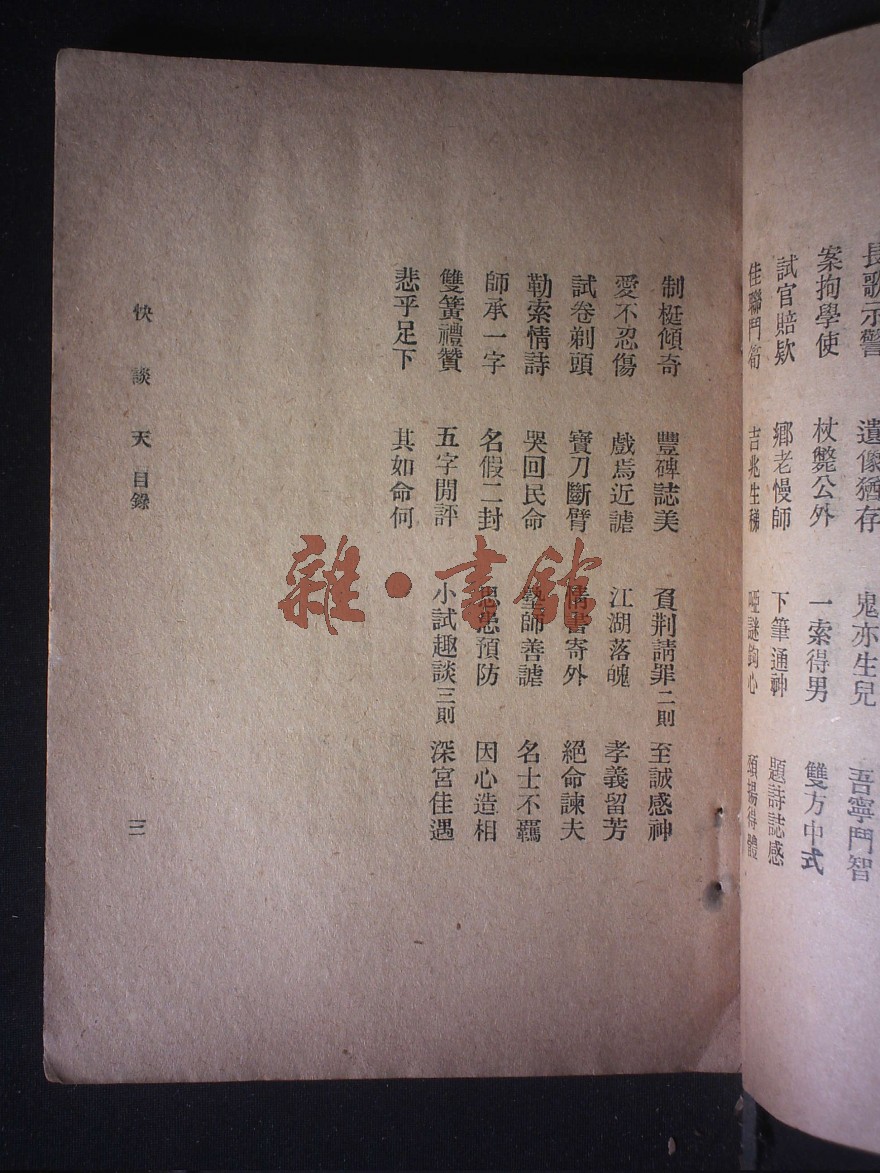 長歌示警　遺像猶存　鬼亦生兒　吾寧鬥智
案拘學使　杖斃公外　一索得男　雙方中式
試官賠欵　鄉老慢師　下筆通神　題詩誌感
佳聯鬥筍　吉兆生稊　啞謎鉤心　頌揚得體
制梃傾奇　豐碑誌美　負荆請罪二則　至誠感神
愛不忍傷　戲焉近謔　江湖落魄　孝義留芳
試卷剃頭　寶刀斷臂　書寄外　絕命諫夫
勒索情詩　哭回民命　塾師善謔　名士不羈
師承一字　名假二封　思患預防　因心造相
雙簧禮贊　五字閒評　小試趣談三則　深宮佳遇
悲乎足下　其如命何
快談天　目錄
三
雜·書館